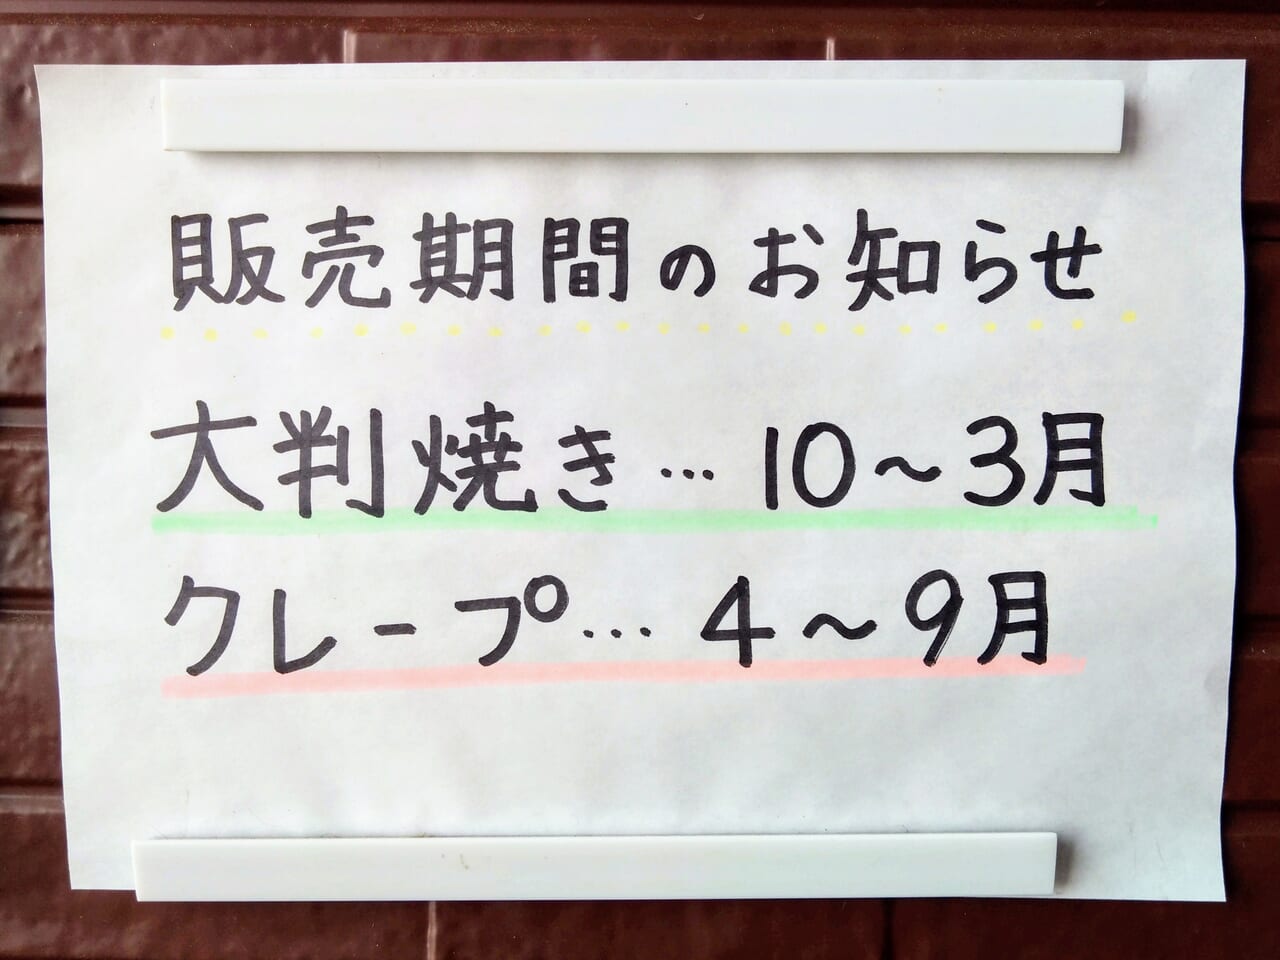 販売期間のお知らせ
大判焼き…10～3月
クレープ…4～9月